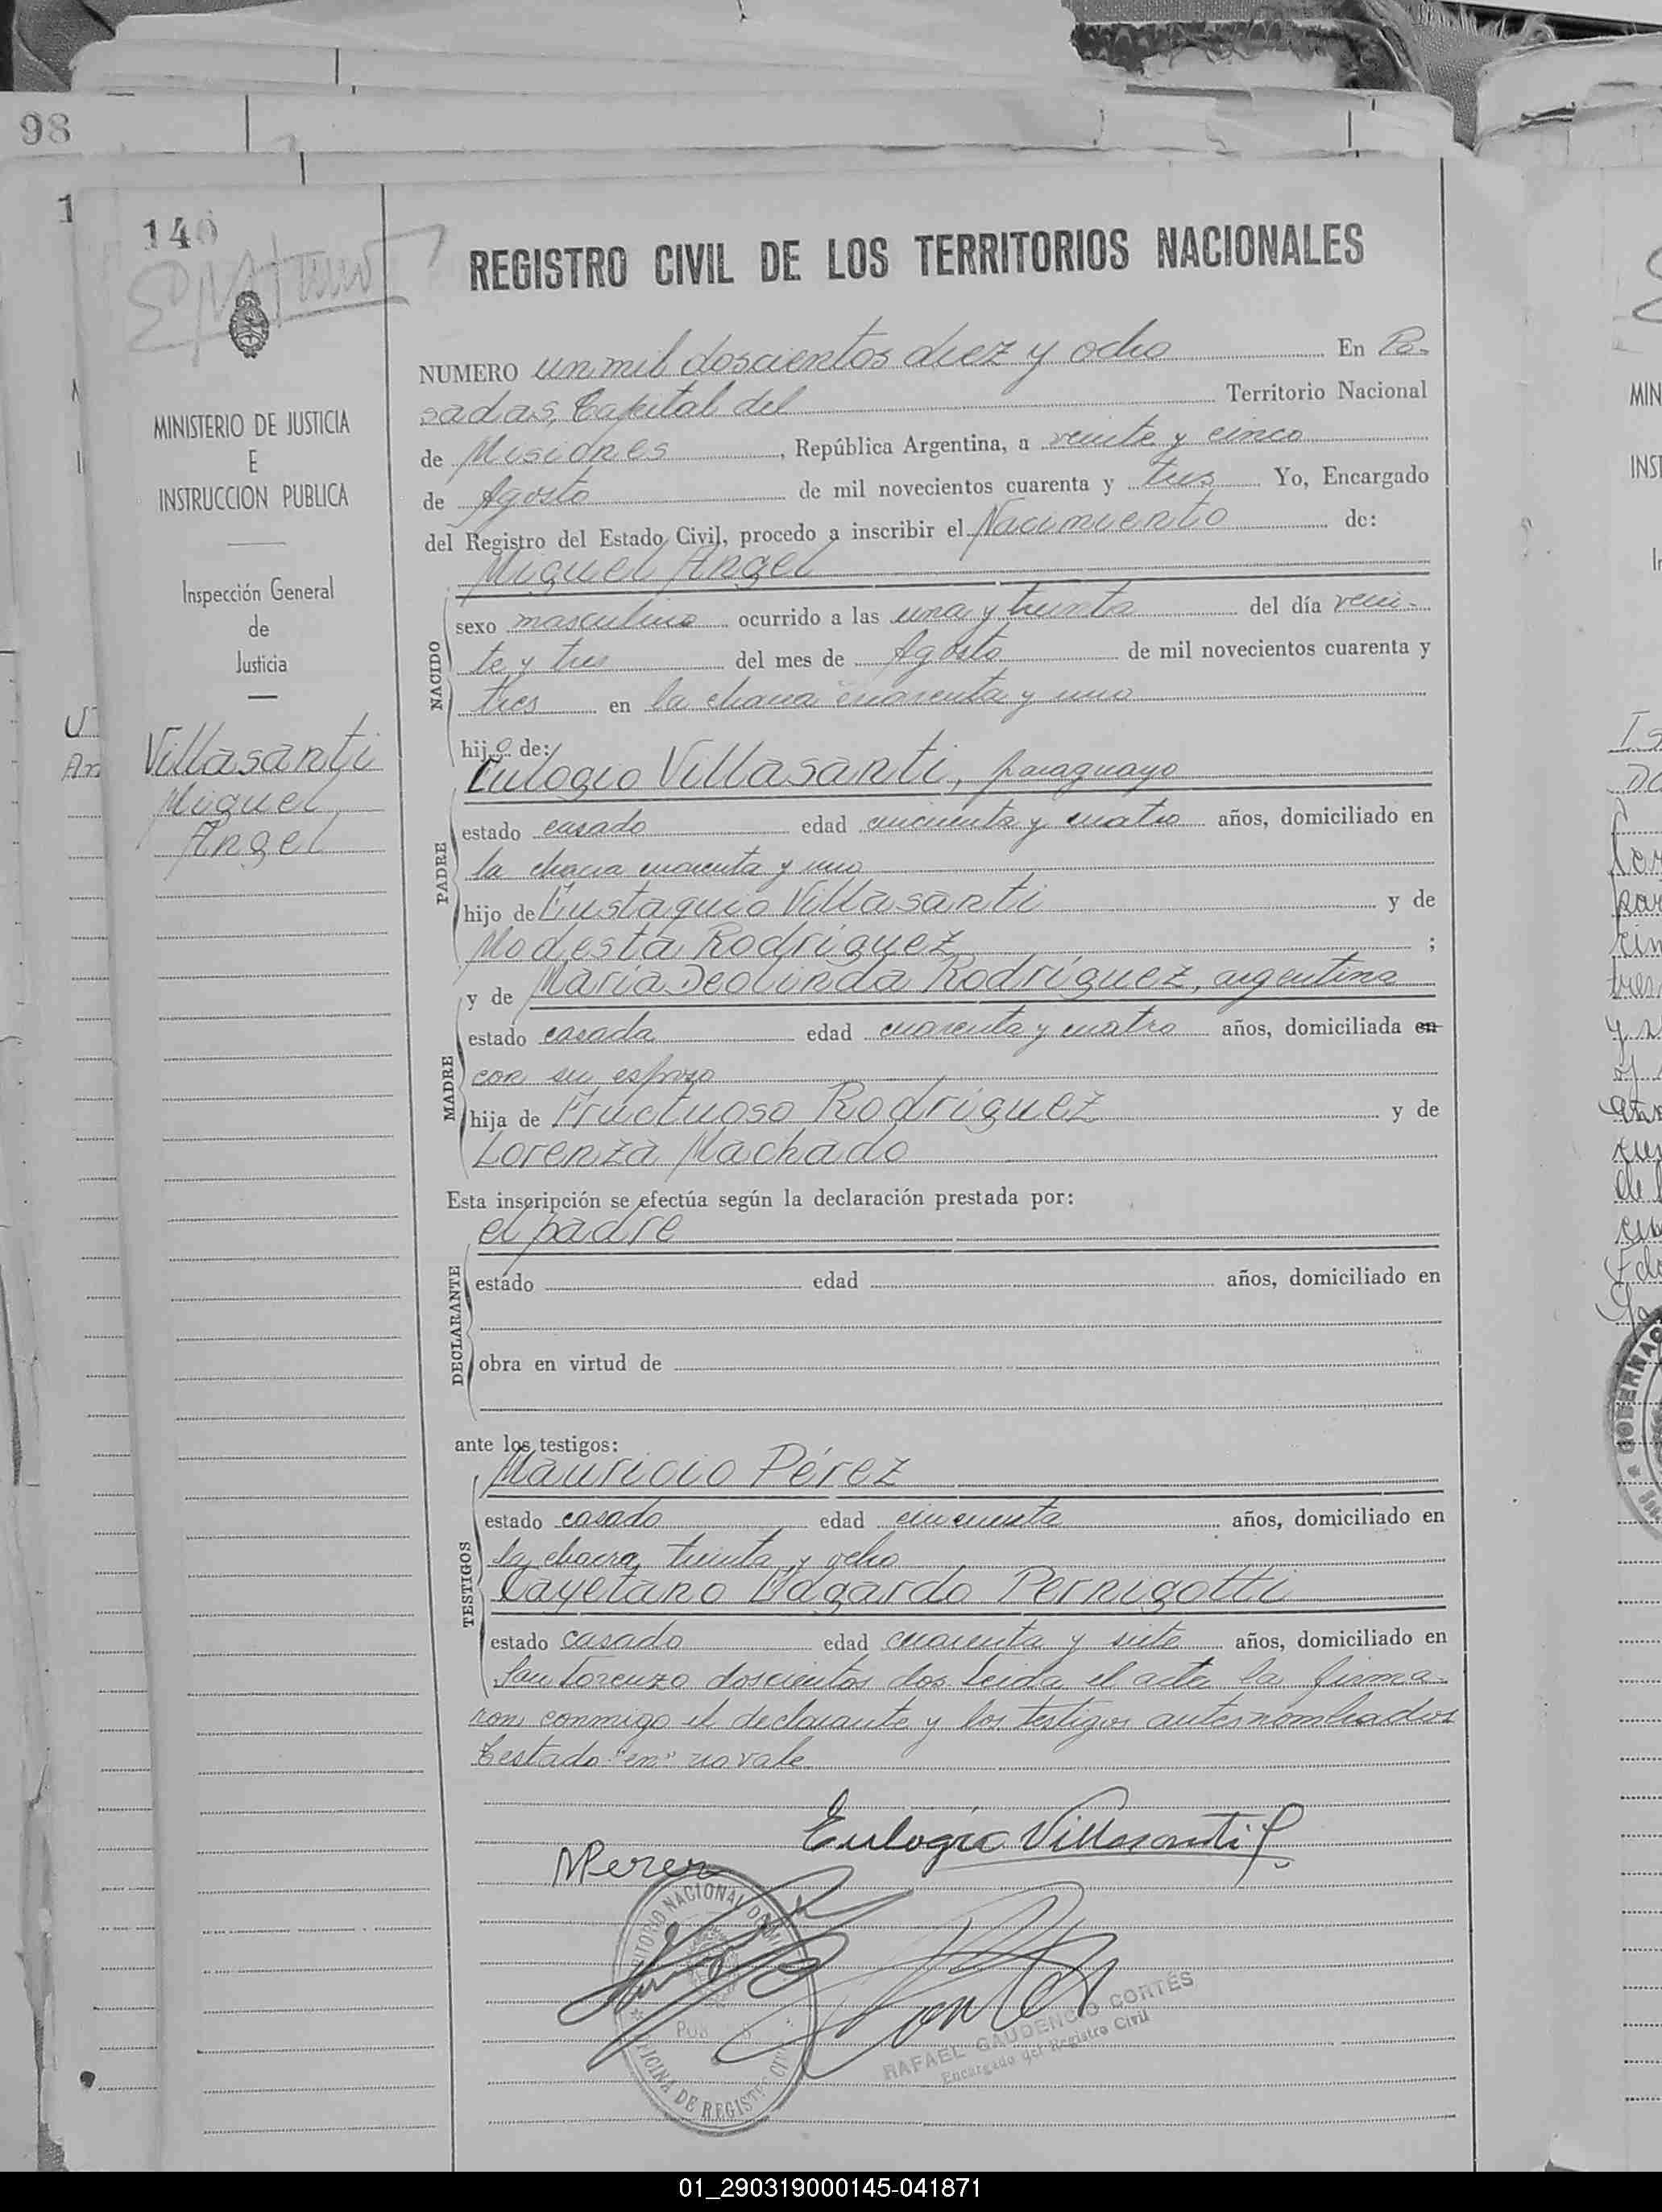 98
1
140
MINISTERIO DE JUSTICIA
E
INSTRUCCION PUBLICA
Inspección General
de
Justicia
Villasanti
Miguel
Angel
REGISTRO CIVIL DE LOS TERRITORIOS NACIONALES
NUMERO un mil doscientos diez y ocho En Po-
sadas, Capital del Territorio Nacional
de Misiones, República Argentina, a veinte y cinco
de Agosto de mil novecientos cuarenta y tres Yo, Encargado
del Registro del Estado Civil, procedo a inscribir el Nacimiento de:
Miguel Angel
NACIDO
sexo masculino ocurrido a las una y treinta del día vein-
te y tres del mes de Agosto de mil novecientos cuarenta y
tres en la chacra cuarenta y uno
hijo de:
Eulogio Villasanti, paraguayo
PADRE
estado casado edad cincuenta y cuatro años, domiciliado en
la chacra cuarenta y uno
hijo de Eustaquio Villasanti y de
Modesta Rodríguez ;
y de María Deolinda Rodríguez, argentina
MADRE
estado casada edad cuarenta y cuatro años, domiciliada en
con su esposo
hija de Fructuoso Rodríguez y de
Lorenza Machado
Esta inscripción se efectúa según la declaración prestada por:
el padre
DECLARANTE
estado edad años, domiciliado en
obra en virtud de
ante los testigos:
Mauricio Pérez
TESTIGOS
estado casado edad cincuenta años, domiciliado en
la chacra treinta y ocho
Cayetano Edgardo Pernigotti
estado casado edad cuarenta y siete años, domiciliado en
San Lorenzo doscientos dos Leida el acta la firma-
ron conmigo el declarante y los testigos antes nombrados
Testado "en" no vale
Eulogio Villasanti
MPerez
RAFAEL GAUDENCIO CORTÉS
Encargado del Registro Civil
OFICINA DE REGISTRO CIVIL
01_290319000145-041871